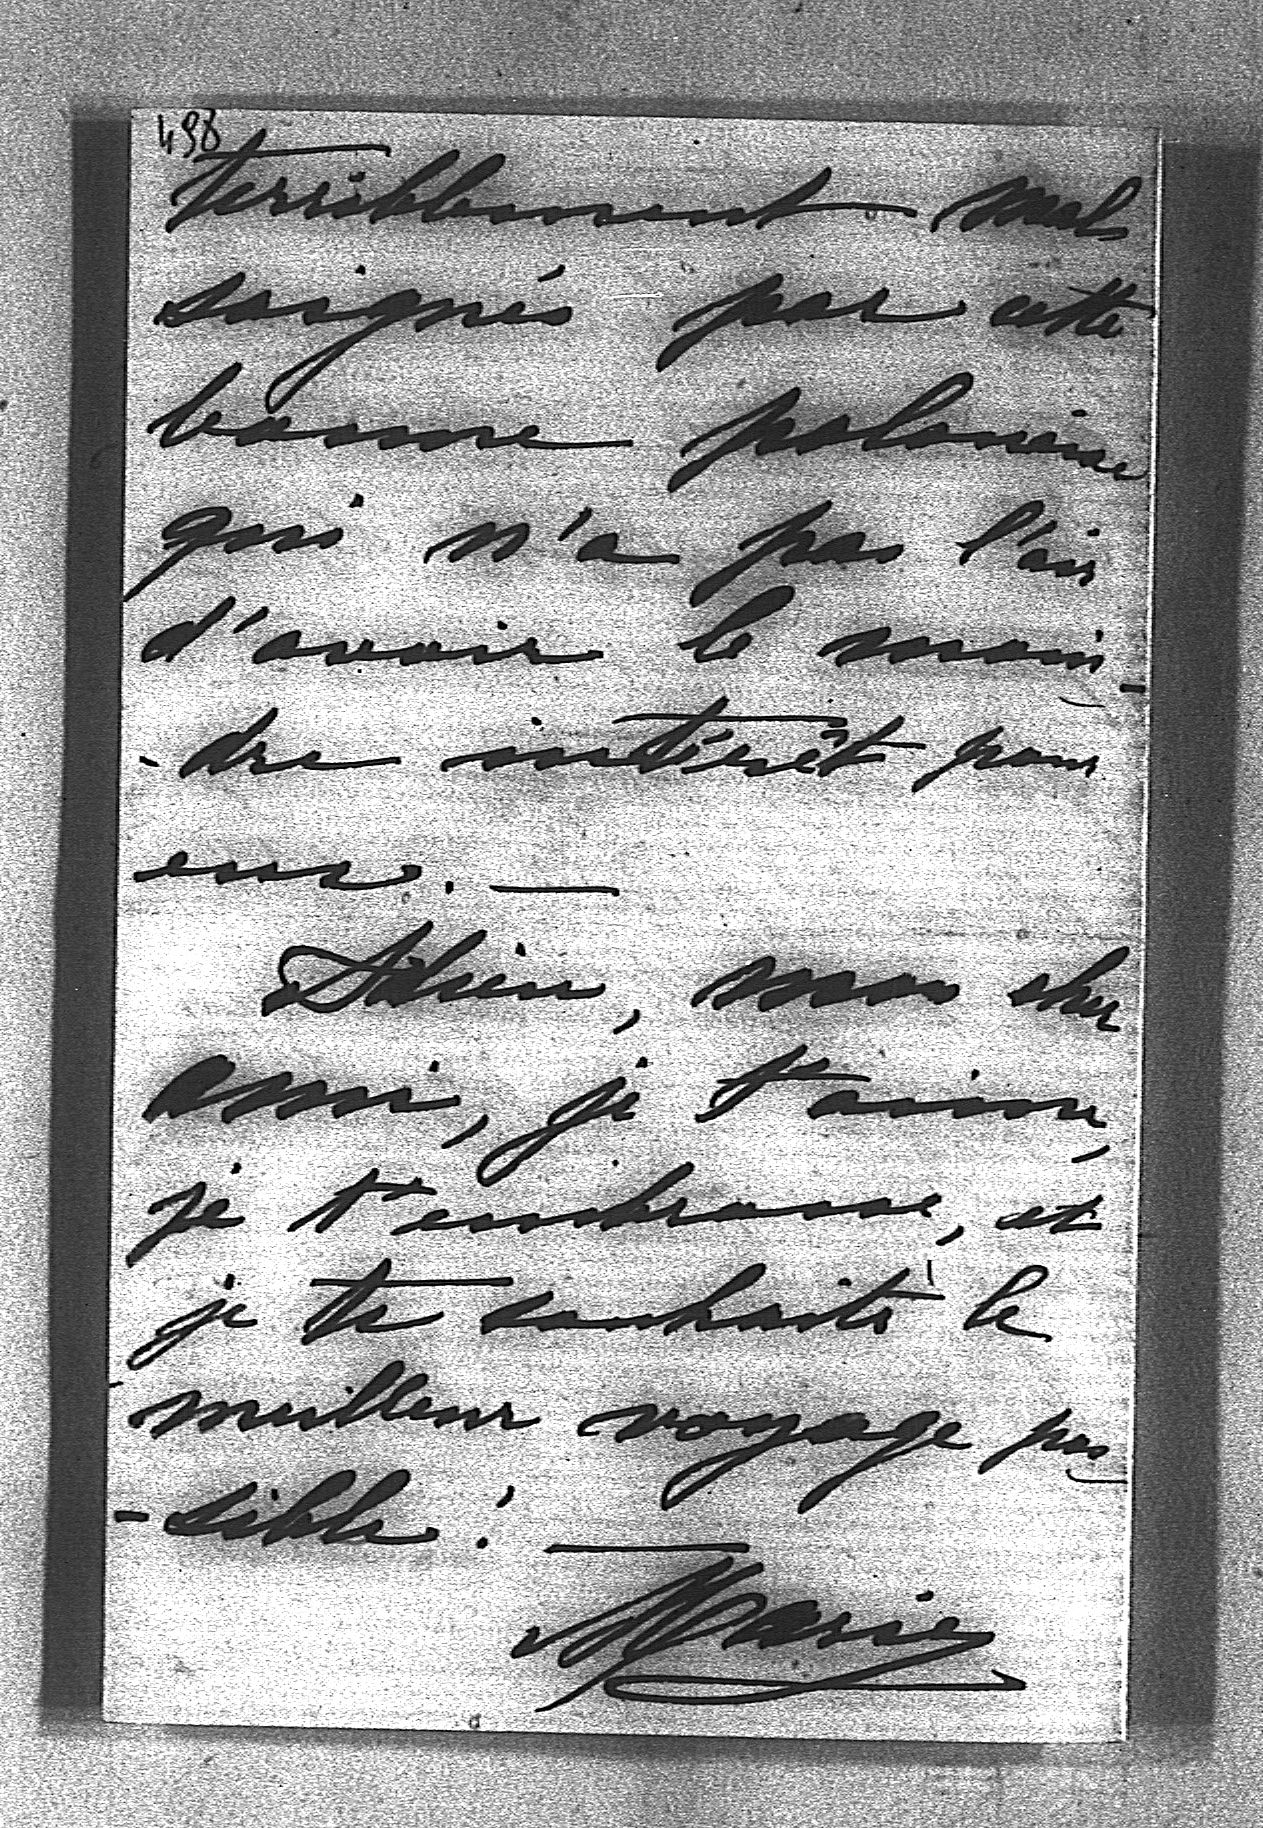 498
terriblement mal
soignés par cette
bonne polonaise
qui n'a pas l'air
d'avoir le moin-
-dre intérêt pour
eux. —
Adieu, mon cher
ami, je t'aime,
je t'embrasse, et
je te souhaite le
meilleur voyage pos
-sible !
Marie